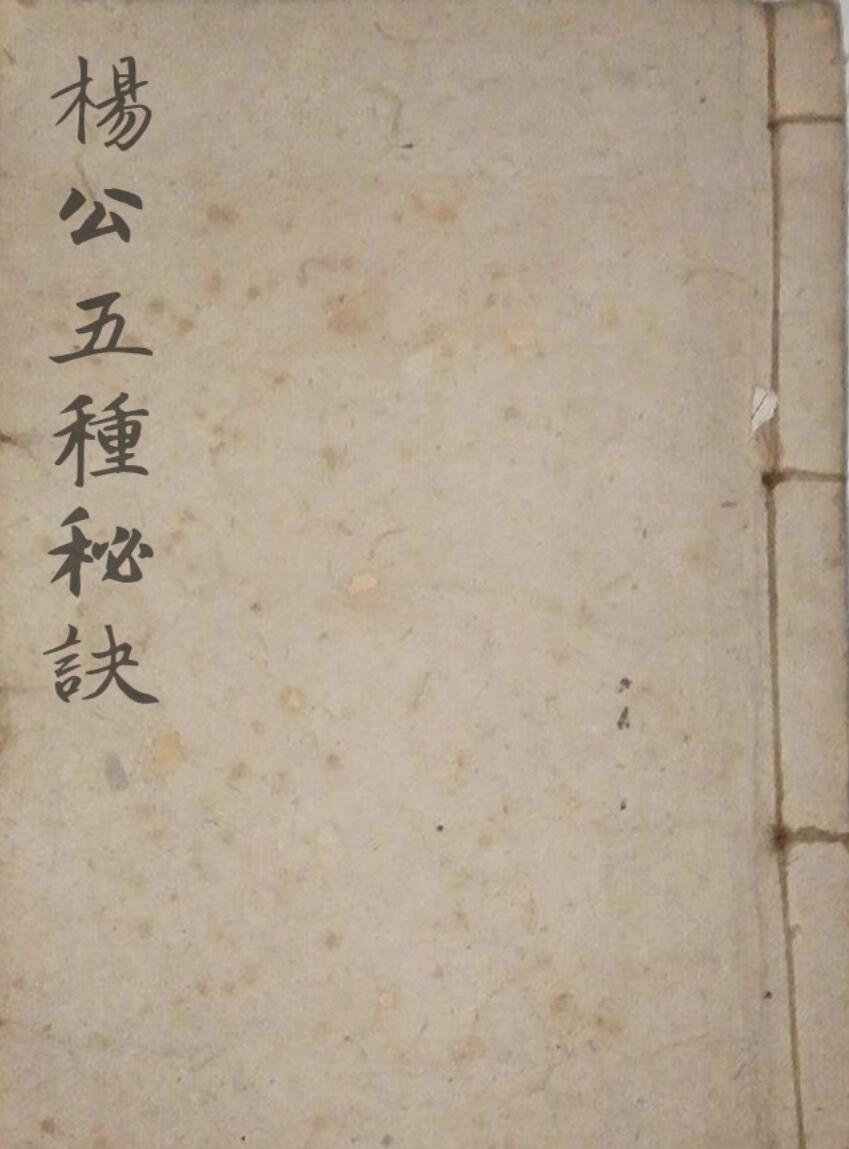 楊公五種秘訣